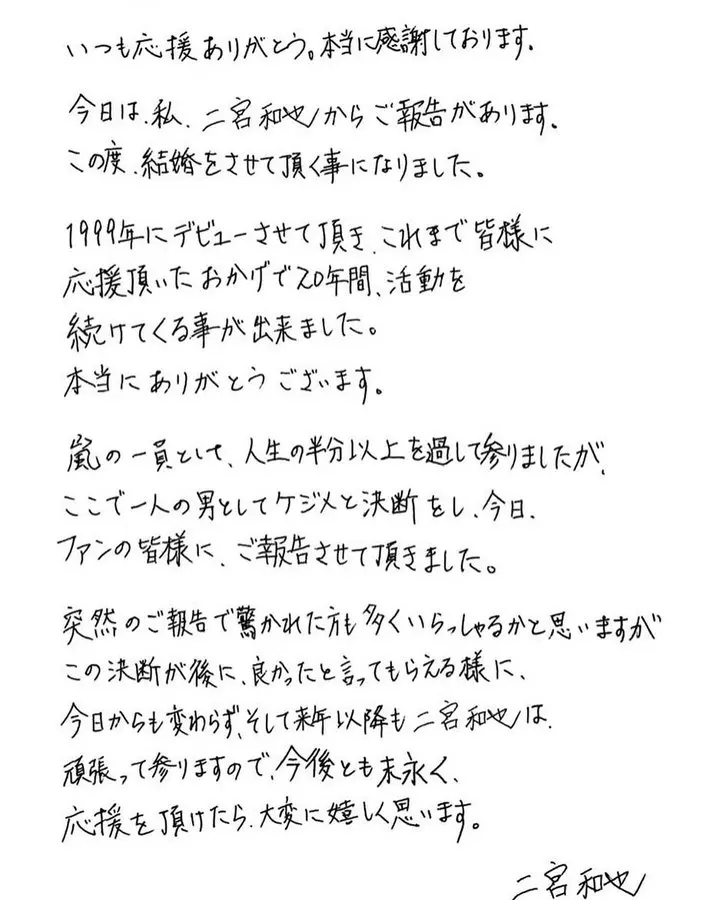 いつも応援ありがとう。本当に感謝しております.
今日は、私、二宮和也からご報告があります。
この度、結婚をさせて頂く事になりました。
1999年にデビューさせて頂き、これまで皆様に
応援頂いたおかげで20年間、活動を
続けてくる事が出来ました。
本当にありがとうございます。
嵐の一員として、人生の半分以上を過して参りましたが、
ここで一人の男としてケジメと決断をし、今日、
ファンの皆様に、ご報告させて頂きました。
突然のご報告で驚かれた方も多くいらっしゃるかと思いますが
この決断が後に、良かったと言ってもらえる様に、
今日からも変わらず、そして来年以降も二宮和也は、
頑張って参りますので、今後とも末永く、
応援を頂けたら、大変に嬉しく思います。
二宮和也